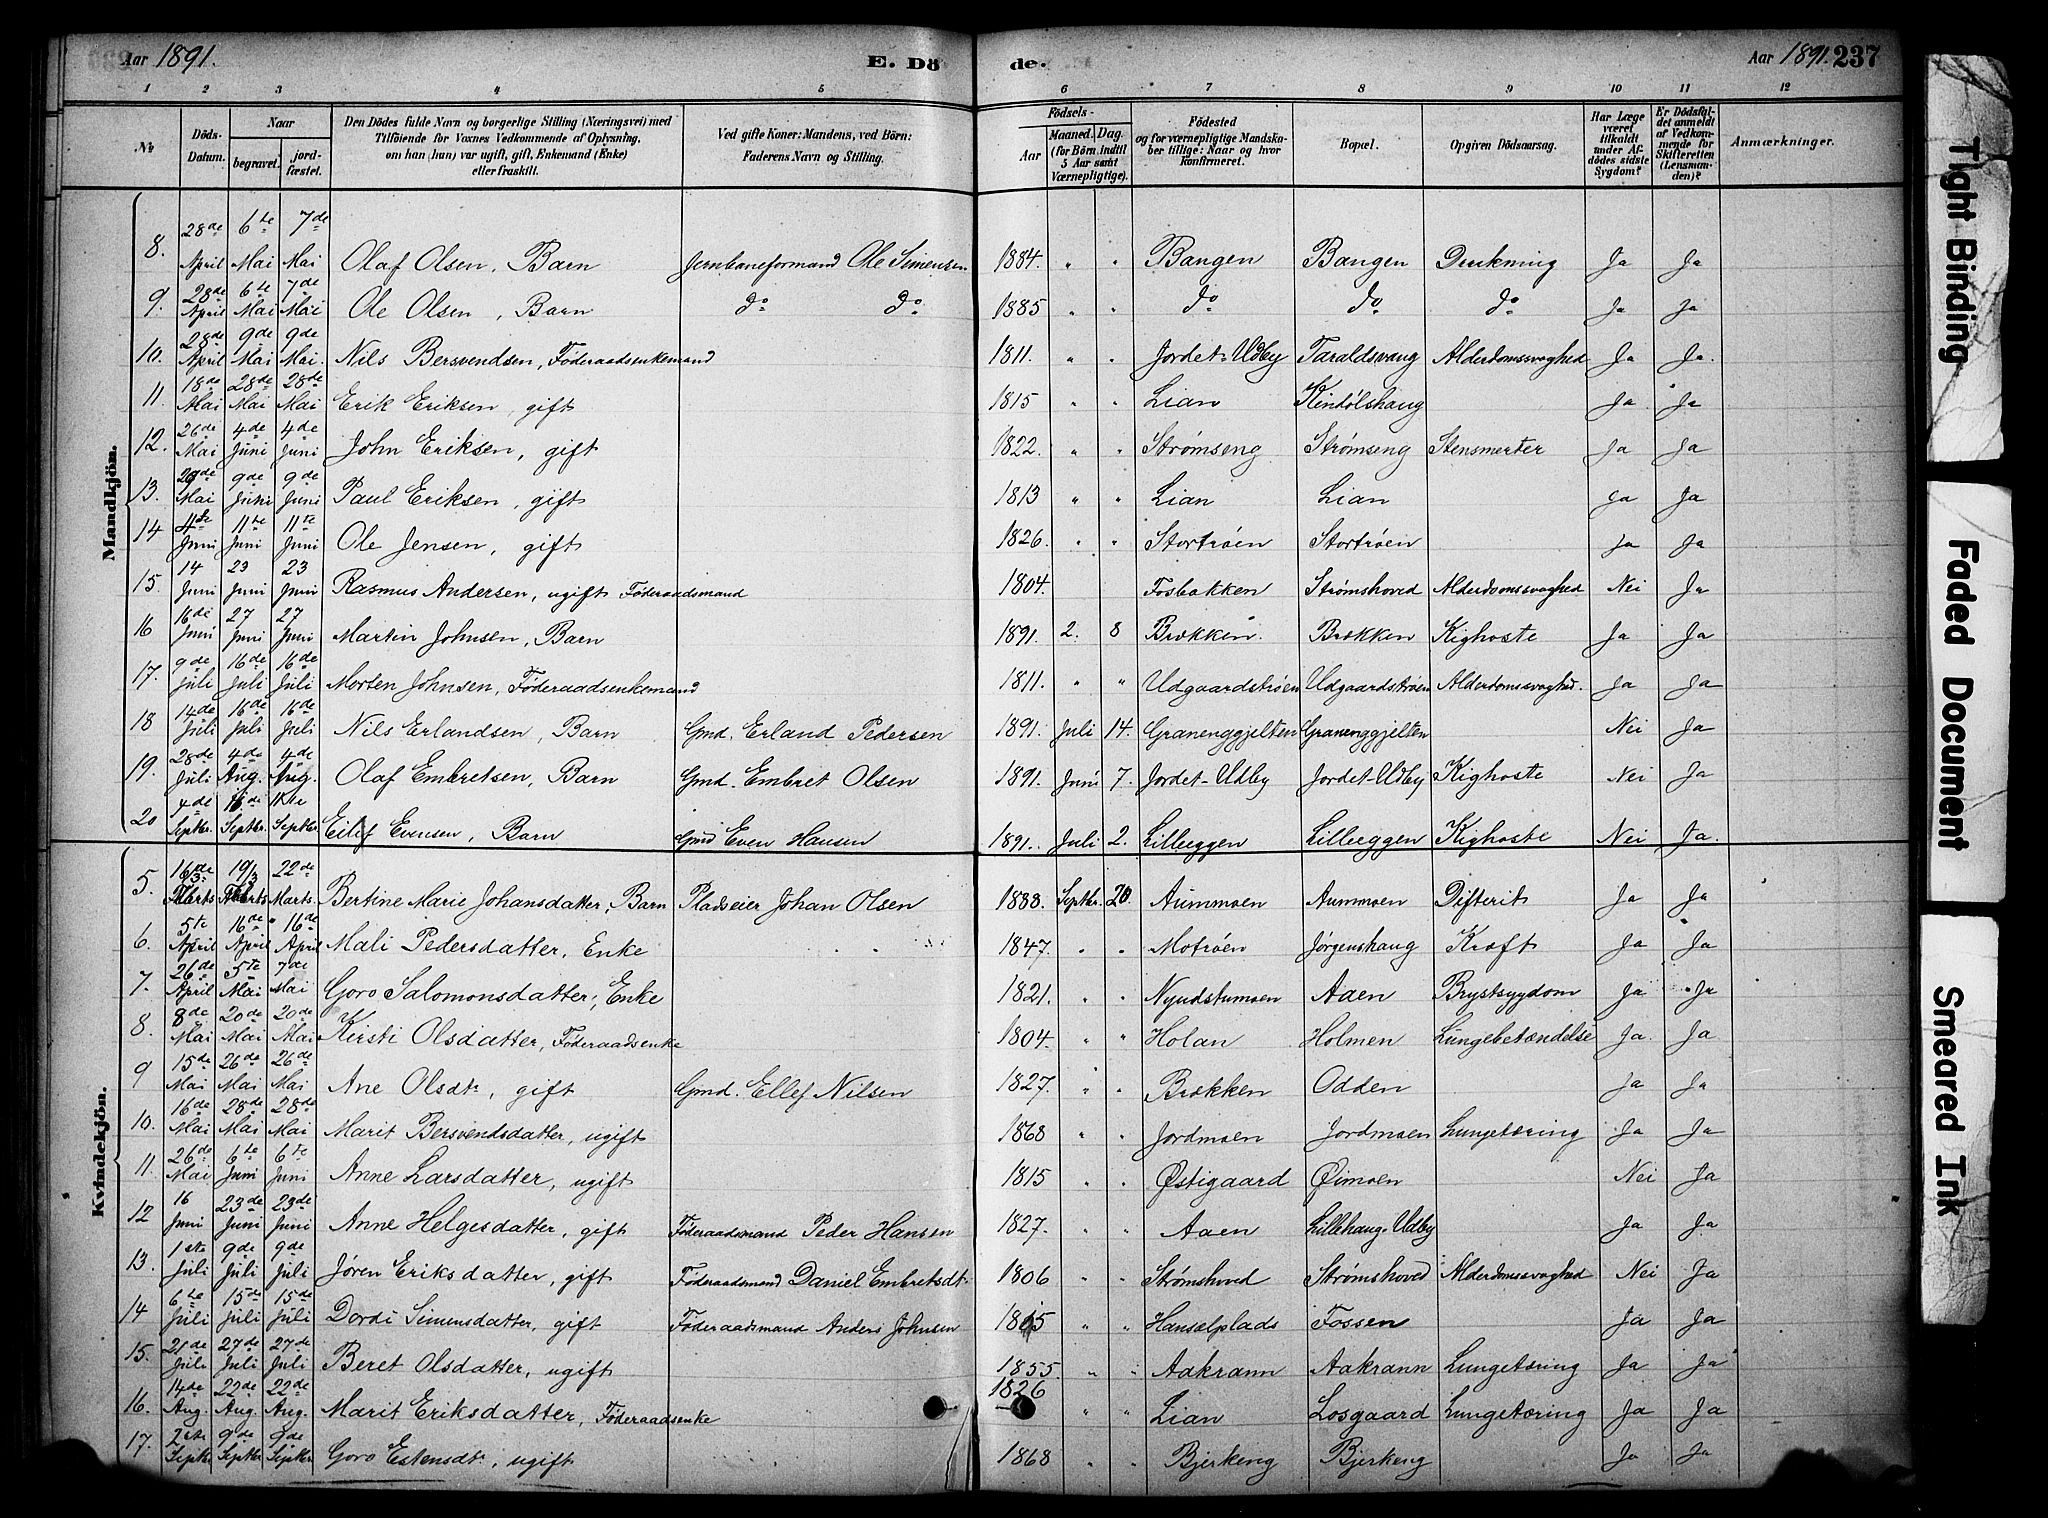 Aar 1891.
E. Dö
de.
Aar 1891. 237
1 2 3 4 5 6 7 8 9 10 11 12
№
Döds-Datum.
Naar begravet. jordfæstet.
Den Dödes fulde Navn og borgerlige Stilling (Næringsvei) med Tilföiende for Voxnes Vedkommende af Oplysning, om han (hun) var ugift, gift, Enkemand (Enke) eller fraskilt.
Ved gifte Koner: Mandens, ved Börn: Faderens Navn og Stilling.
Födsels-
Aar
Maaned. Dag. (for Börn indtil 5 Aar samt Værnepligtige).
Födested og for værnepligtige Mandskaber tillige: Naar og hvor Konfirmeret.
Bopæl.
Opgiven Dödsaarsag.
Har Læge været tilkaldt under Afdödes sidste Sygdom?
Er Dödsfaldet anmeldt af Vedkommende for Skifteretten (Lensmanden)?
Anmærkninger.
Mandkjön.
8. 28de April 6te Mai 7de Mai Olaf Olsen, Barn Jernbaneformand Ole Simensen 1884. " " Bangen Bangen Drukning Ja Ja
9. 28de April 6te Mai 7de Mai Ole Olsen, Barn do do 1885 " " do do do Ja Ja
10. 28de April 9de Mai 9de Mai. Nils Bersvendsen, Föderaadsenkemand 1811. " " Jordet-Udby Taraldsvang Alderdomssvaghed Ja Ja.
11. 18de Mai 28de Mai 28de Mai Erik Eriksen, gift 1815 " " Lian Kindölshaug Ja Ja
12. 26de Mai 4de Juni 4de Juni John Eriksen, gift 1822. " " Strømseng Strømseng Stensmerter Ja Ja
13. 29de Mai 9de Juni 9de Juni Paul Eriksen, gift 1813 " " Lian Lian Ja Ja
14 4de Juni 11te Juni 11te Juni Ole Jensen, gift 1826. " " Stortrøen Stortrøen Ja Ja
15. 14 Juni 23 Juni 23 Juni Rasmus Andersen, ugift Föderaadsmand 1804. Fosbakken Strømshoved Alderdomssvaghed Nei Ja
16 16de Juni 27 Juni 27 Juni Martin Johnsen, Barn 1891. 2. 8 Brækken. Brækken Kighoste Ja Ja
17. 9de Juli 16de Juli 16de Juli Morten Johnsen, Föderaadsenkemand 1811. " " Udgaardstrøen Udgaardstrøen Alderdomssvaghd. Ja Ja
18 14de Juli 16de Juli 16de Juli Nils Erlandsen, Barn Gmd. Erland Pedersen 1891. Juli 14. Granenggjelten Granenggjelten Nei Ja
19. 28de Juli 4de Aug. 4de Aug. Olaf Embretsen, Barn Gmd. Embret Olsen 1891. Juni 7. Jordet-Udby Jordet-Udby Kighoste Nei Ja
20 4de Septbr. Septbr. Septbr. Eilif Evensen, Barn Gmd Even Hansen 1891. Juli 2. Lilleeggen Lilleeggen Kighoste Nei Ja.
Kvindekjön.
5. Marts 19/3 Marts 22de Marts. Bertine Marie Johansdatter, Barn Pladseier Johan Olsen 1888. Septbr. 20. Aummoen Aummoen Difterit Ja Ja
6. 5te April 16de April 16de April Mali Pedersdatter, Enke 1847. " " Motrøen Jørgenshaug Kræft Ja Ja
7. 26de April 5te Mai 7de Mai Goro Salomonsdatter, Enke 1821. " " Nyudstumoen Aaen Brystsygdom Ja Ja
8. 8de Mai 20de Mai 20de Mai Kirsti Olsdatter, Föderaadsenke 1804. " " Holan Holmen Lungebetændelse Ja. Ja
9 15de Mai 26de Mai 26de Mai Ane Olsdtr, gift Gmd. Ellef Nilsen 1827. " " Brækken Odden Ja Ja
10. 16de Mai 28de Mai 28de Mai Marit Bersvendsdatter, ugift 1868 " " Jordmoen Jordmoen Lungetæring Ja Ja
11. 26de Mai 6te Juni 6te Juni Anne Larsdatter, ugift 1815 " " Østigaard Øimoen Nei Ja
12 16 Juni 23de Juni 23de Juni Anne Helgesdatter, gift Föderaadsmand Peder Hansen 1827. " " Aaen Lillehaug-Udby Ja Ja
13. 1ste Juli 9de Juli 9de Juli Jøren Eriksdatter, gift Föderaadsmand Daniel Embretsdt. 1806 " " Strømshoved Strømshoved Alderdomssvaghed Nei Ja
14 6te Juli 15de Juli 15de Juli Dordi Simensdatter, gift Föderaadsmand Anders Johnsen 1815 " " Hanselplads Fossen Ja Ja
15. 21de Juli 27de Juli 27de Juli Beret Olsdatter, ugift 1855. " " Aakrann Aakrann Lungetæring Ja Ja
16. 14de Aug. 22de Aug. 22de Aug. Marit Eriksdatter, Föderaadsenke 1826 " " Lian Losgaard Lungetæring Ja Ja
17. 2den Septbr 9de Septbr 9de Septbr Goro Estensdtr, ugift 1868 " " Bjerkeng Bjerkeng Ja Ja
Tight Binding
Faded Document
Smeared Ink